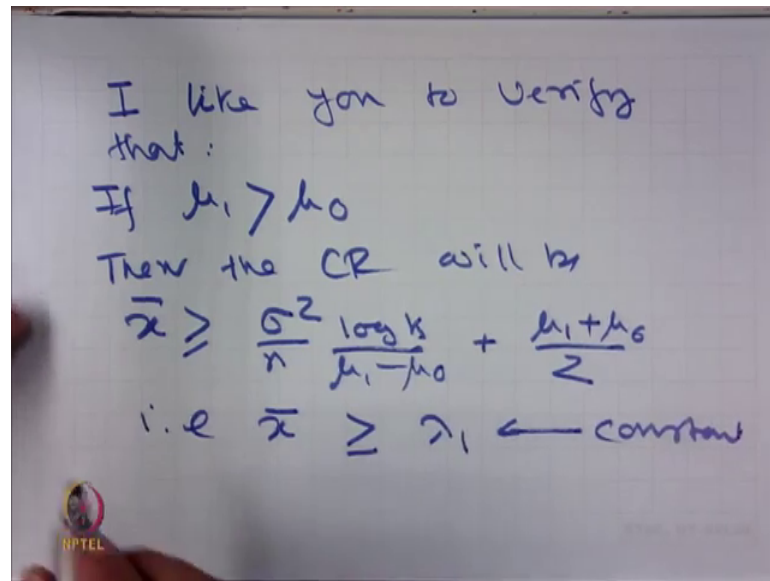 I like you to verify
that:
If μ₁ > μ₀
Then the CR will be
x̄ ≥ σ²/n log k/(μ₁-μ₀) + (μ₁+μ₀)/2
i.e x̄ ≥ λ₁ ← constant
NPTEL